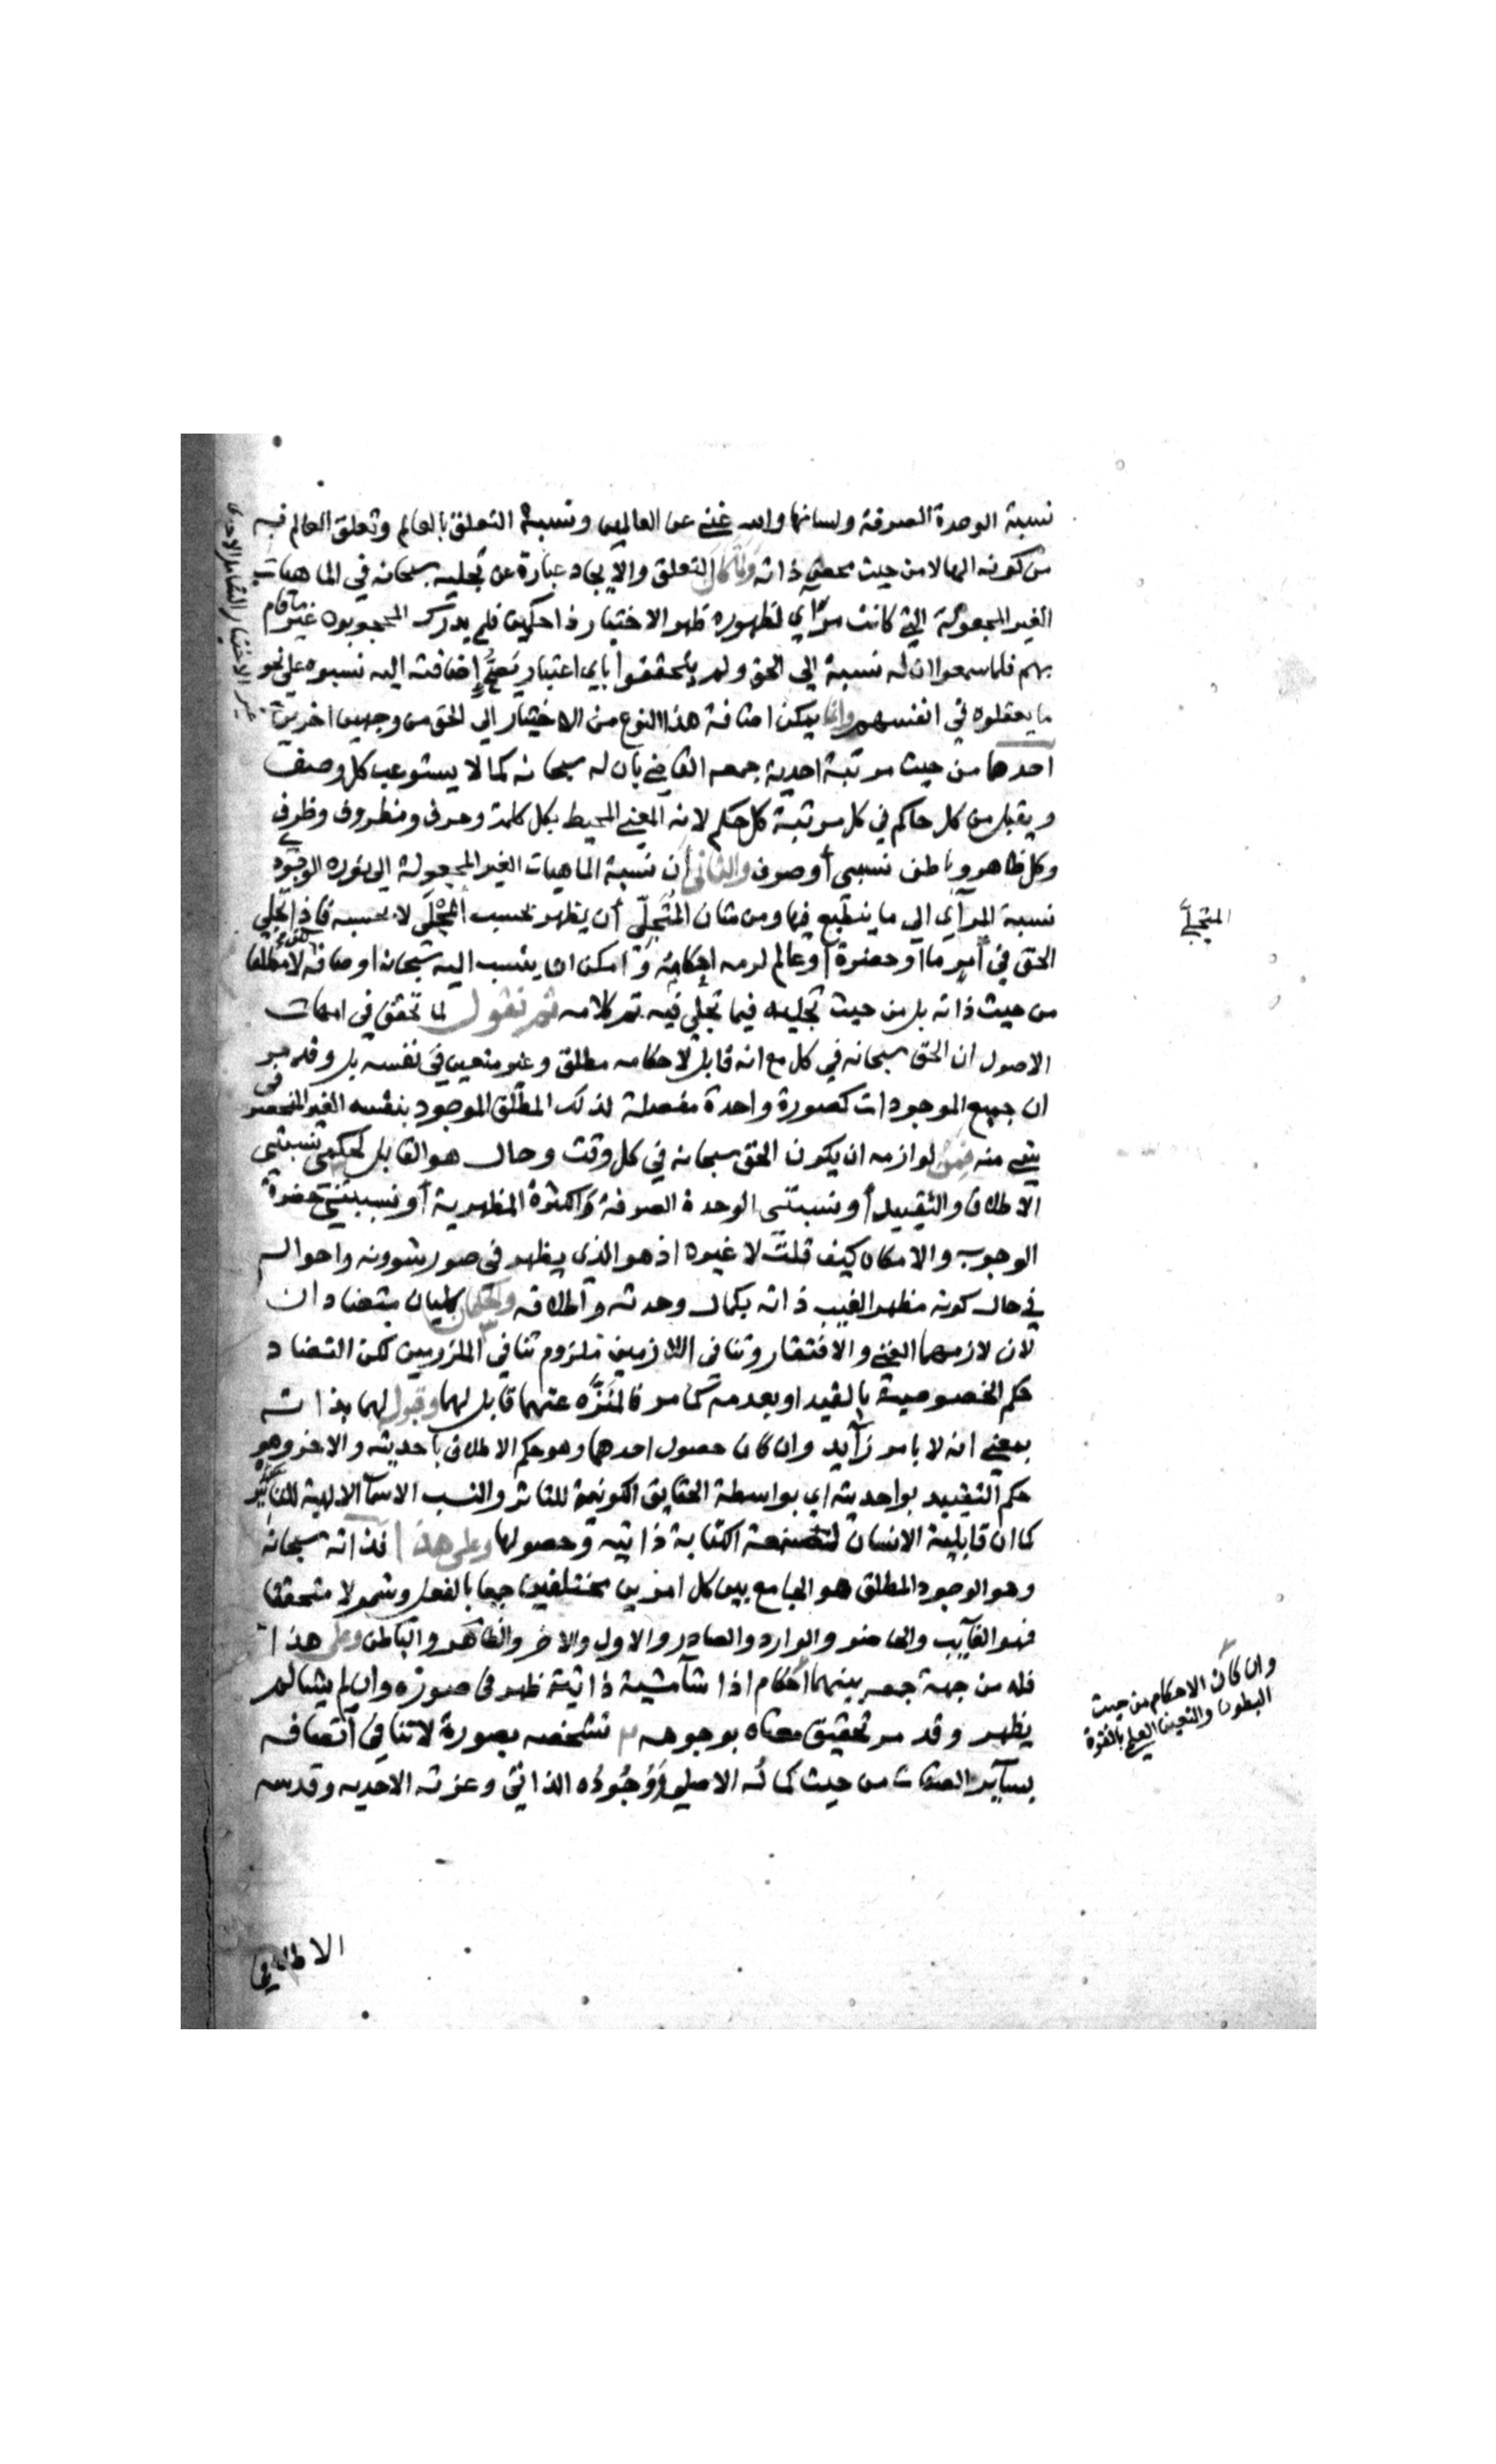 نسبة الوحدة الصرفة ولسانها والله غني عن العالمين ونسبة التعلق بالعالم وتعلق العالم به
من كونه الها لا من حيث محض ذاته ولما كان التعلق والايجاد عبارة عن تجليه سبحانه في الماهيات
الغير المجعولة التي كانت مرآي لظهوره ظهر الاختيار ذا حكمين فلم يدرك المحجوبون غير ما قام
بهم فلما سمعوا ان له نسبة الي الحق ولم يتحققوا باي اعتبار تصح اضافته اليه نسبوه علي نحو
ما يعقلوه في انفسهم وانما يمكن اضافة هذا النوع من الاختيار الي الحق من وجهين اخرين
احدهما من حيث مرتبة احدية جمعه القاضي بان له سبحانه كمالا يستوعب كل وصف
ويقبل من كل حاكم في كل مرتبة كل حكم لانه المعني المحيط بكل كلمة وحرف ومظروف وظرف
وكل ظاهر وباطن نسبي أو صرف والثاني أن نسبة الماهيات الغير المجعولة الي نوره الوجودي
نسبة المرآي الي ما ينطبع فيها ومن شان المتجلّي أن يظهر بحسب المجلَي لا بحسبه فاذا تجلي
الحق في أمر ما أو حضرة أو عالم لزمه احكامه وامكن ان ينسب اليه سبحانه اوصافه لا مطلقا
من حيث ذاته بل من حيث تجليه فيما تجلّي فيه تم كلامه ثم نقول لما تحقق في امهات
الاصول ان الحق سبحانه في كل مع انه قابل لاحكامه مطلق وغير متعين في نفسه بل وقد مر
ان جميع الموجودات كصورة واحدة مفصلة لذلك المطلق الموجود بنفسه الغير المنحصر في
شي منه فمن لوازمه ان يكون الحق سبحانه في كل وقت وحال هو القابل لحكمي نسبتي
الاطلاق والتقييد أو نسبتي الوحدة الصرفة والكثرة المظهرية أو نسبتي حضرة
الوجوب والامكان كيف قلت لا غيره اذ هو الذي يظهر في صور شوونه واحواله
في حال كونه مظهر الغيب ذاته بكمال وحدته واطلاقه والحكمان كليان متضادان
لان لازمهما الغني والافتقار وتنافي اللازمين ملزوم تنافي الملزومين لكن التضاد
حكم الخصوصية بالقيد او بعدمه كما مر فالمنزّه عنهما قابل لهما وقبول لهما بذاته
بمعني انه لا بامر زآيد وان كان حصول احدهما وهو حكم الاطلاق باحديته والاخر وهو
حكم التقييد بواحديته اي بواسطة الحقايق الكونية للتاثر والنسب الاسمآ الالهية للتاثير
كما ان قابلية الانسان لصنعة الكتابة ذاتيه وحصولها وعلي هذا فذاته سبحانه
وهو الوجود المطلق هو الجامع بين كل امرين مختلفين جمعا بالفعل وشمولا متحققا
فهو الغآيب والحاضر والوارد والصادر والاول والاخر والظاهر والباطن وعلي هذا
فله من جهة جمعه بينهما احكام اذا شآ مشية ذاتية ظهر في صورة وان لم يشا لم
يظهر وقد مر تحقيق معناه بوجوهه تشخصه بصورة لا تنافي اتصافه
بسآير الصفات من حيث كماله الاصلي ووجوده الذاتي وعزته الاحديه وقدسه
الاطلاقي
المتجلي
وان كان الاحكام من حيث
البطون والتعين العلمي بالقوة